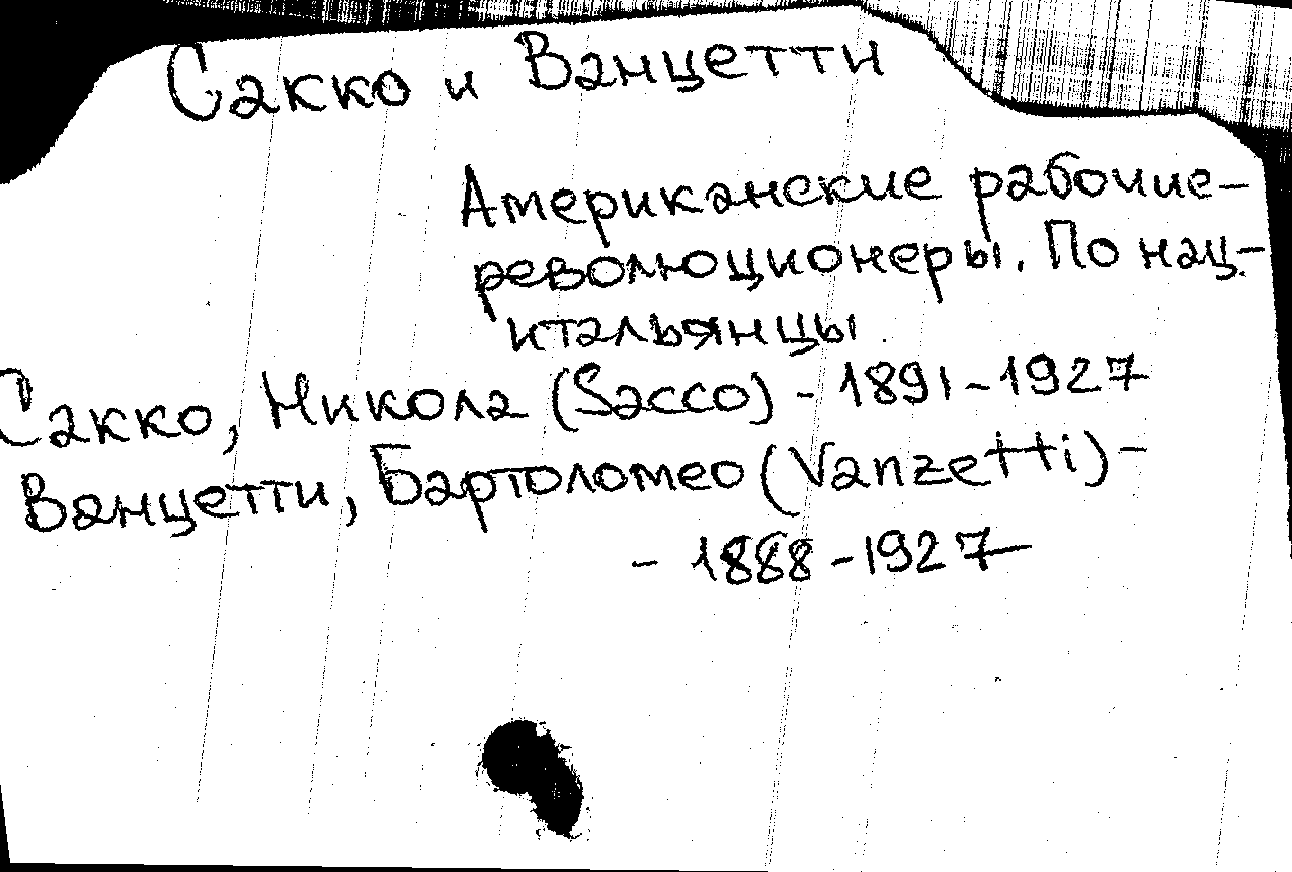 Сакко и Ванцетти
Американские рабочие-
революционеры. По нац-
итальянцы.
Сакко, Никола (Sacco) - 1891-1927
Ванцетти, Бартоломео (Vanzetti) -
- 1888-1927